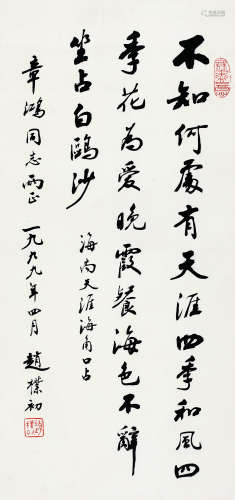 不知何處有天涯四季和風四
季花為愛晚霞餐海色不辭
坐占白鷗沙
海南天涯海角口占
章鴻同志兩正
一九九九年四月 趙樸初